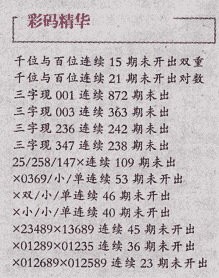 彩码精华
千位与百位连续 15 期未开出双重
千位与百位连续 21 期未开出对数
三字现 001 连续 872 期未出
三字现 003 连续 363 期未出
三字现 236 连续 242 期未出
三字现 347 连续 238 期未出
25/258/147×连续 109 期未出
×0369/小/单连续 53 期未开出
×双/小/单连续 46 期未开出
×小/小/单连续 40 期未开出
×23489×13689 连续 45 期未开出
×01289×01235 连续 36 期未开出
×012689×012589 连续 23 期未开出